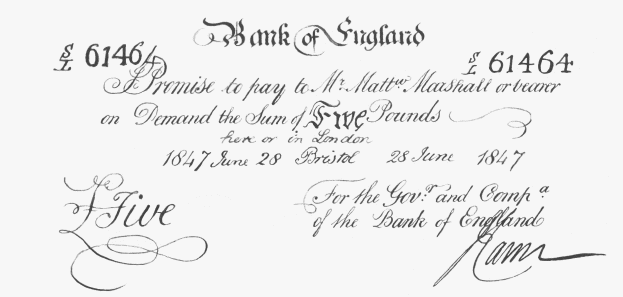 Bank of England
S/L 61464 S/L 61464
I Promise to pay to Mr. Mattw Marshall or bearer
on Demand the Sum of Five Pounds
here or in London
1847 June 28 Bristol 28 June 1847
£ Five
For the Gov.r and Comp.a
of the Bank of England